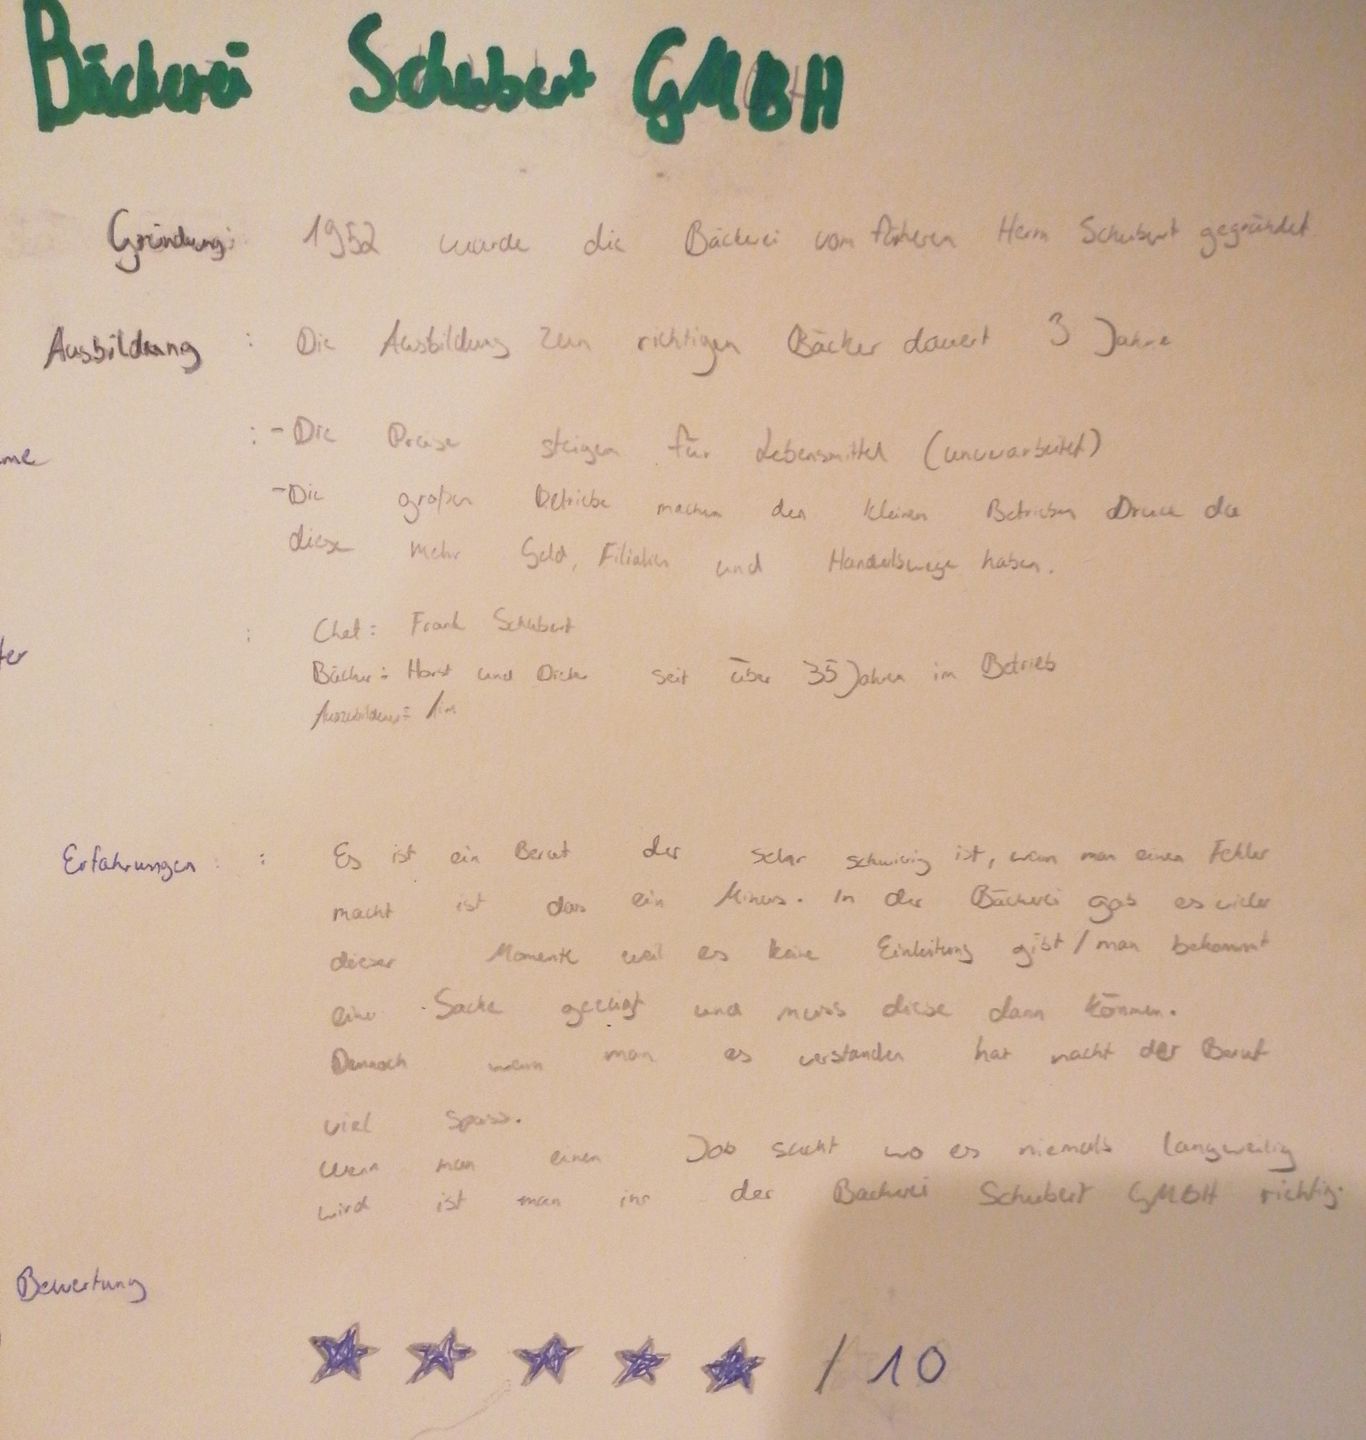 Bäckerei Schubert GMBH
Gründung: 1952 wurde die Bäckerei vom früheren Herrn Schubert gegründet
Ausbildung : Die Ausbildung zum richtigen Bäcker dauert 3 Jahre
me : - Die Preise steigen für Lebensmittel (unverarbeitet)
- Die großen Betriebe machen den kleinen Betrieben Druck da
diese mehr Geld, Filialen und Handelswege haben.
ter : Chef: Frank Schubert
Bäcker: Horst und seit über 35 Jahren im Betrieb
Auszubildener:
Erfahrungen : Es ist ein Beruf der sehr schwierig ist, wenn man einen Fehler
macht ist das ein Minus. In der Bäckerei gab es vieler
dieser Momente weil es keine Einleitung gibt / man bekommt
eine Sache gezeigt und muss diese dann können.
Dennoch wenn man es verstanden hat macht der Beruf
viel Spass.
Wenn man einen Job sucht wo es niemals langweilig
wird ist man in der Bäckerei Schubert GMBH richtig.
Bewertung
/ 10